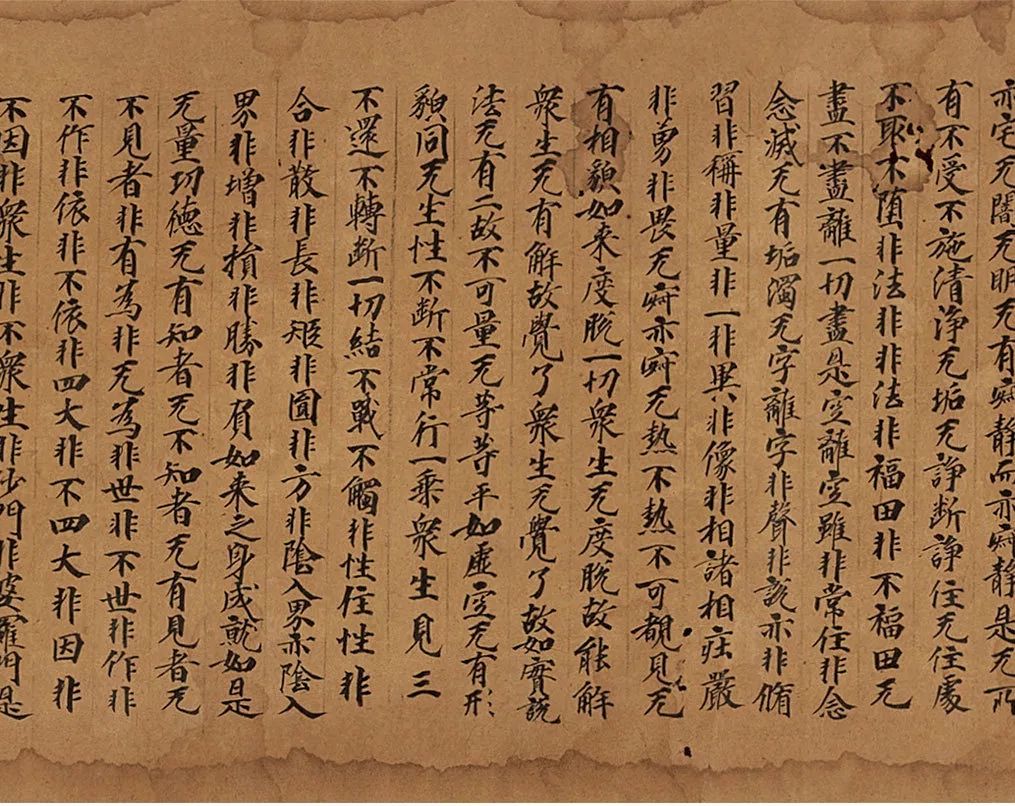 亦宅无闇无明无有寂静而亦寂静是无所
有不受不施清浄无垢无諍断諍住无住處
不取不堕非法非非法非福田非不福田无
盡不盡離一切盡是空離空雖非常住非念
念滅无有垢濁无字離字非聲非説亦非脩
習非稱非量非一非異非像非相諸相庄嚴
非勇非畏无寂亦寂无熱不熱不可覩見无
有相貌如来度脱一切衆生无度脱故能解
衆生无有解故覺了衆生无覺了故如實説
法无有二故不可量无等等平如虚空无有形
貌同无生性不断不常行一乘衆生見三
不還不轉断一切結不戰不觸非性住性非
合非散非長非短非圓非方非陰入界亦陰入
界非增非損非勝非負如来之身成就如是
无量功德无有知者无不知者无有見者无
不見者非有為非无為非世非不世非作非
不作非依非不依非四大非不四大非因非
不因非衆生非不衆生非沙門非婆羅門是